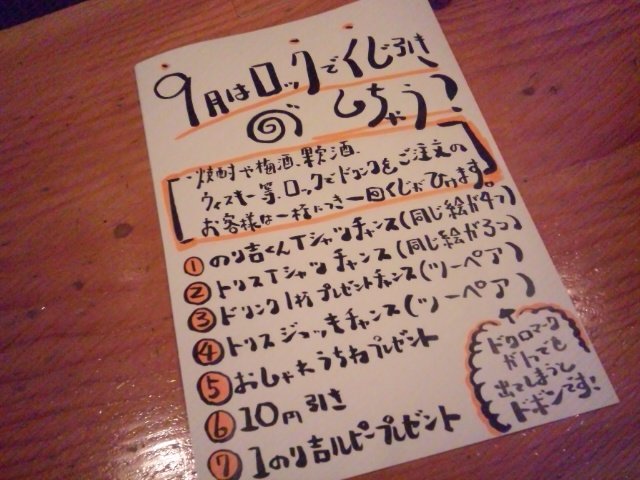 9月はロックでくじ引き
しちゃう?
焼酎や梅酒、果実酒、
ウィスキー等、ロックでドリンクをご注文の
お客様は一様につき一回くじがひけます
① のり吉くんTシャツチャンス(同じ絵が4つ)
② トリスTシャツチャンス(同じ絵が3つ)
③ ドリンク1杯プレゼントチャンス(ツーペア)
④ トリスジョッキチャンス(ツーペア)
⑤ おしゃれうちわプレゼント
⑥ 10円引き
⑦ 1のり吉ルピープレゼント
ドクロマーク
が1つでも
出てしまうと
ドボンです!